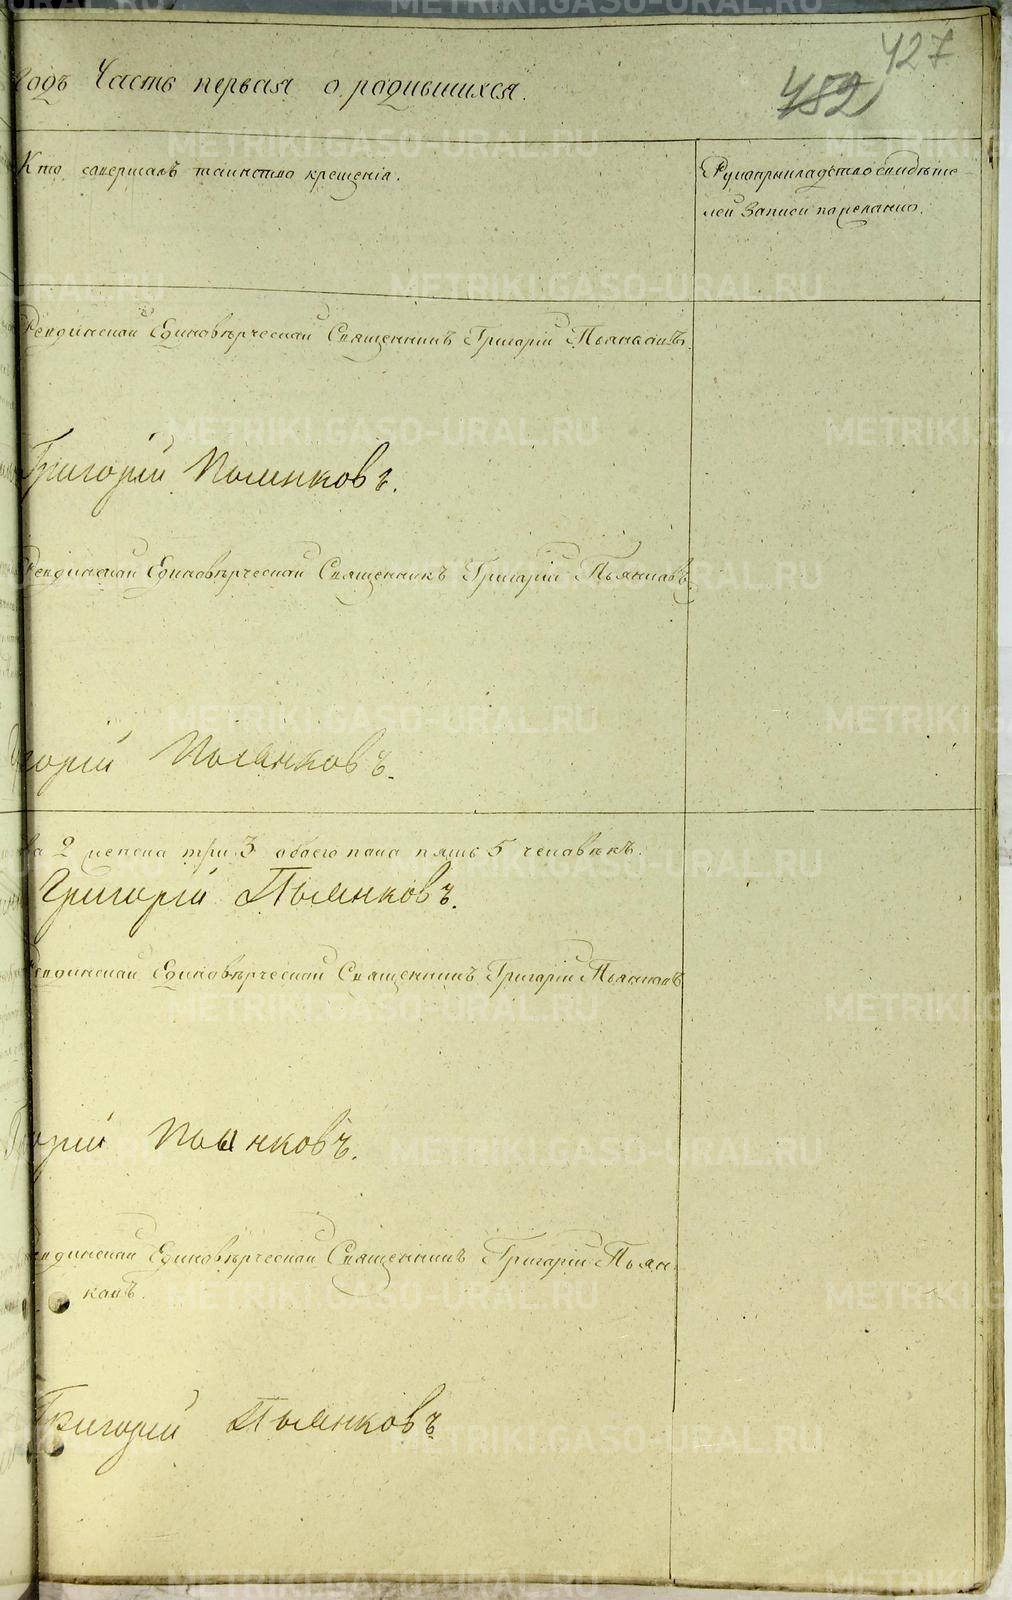 427
452
годъ Часть первая о родившихся.
Кто совершалъ таинство крещенія.
Рукоприкладство свидѣте-
лей записи по желанію.
Ревдинской Единовѣрческой Священникъ Григорій Пьянковъ.
Григорій Пьянковъ.
Ревдинской Единовѣрческой Священникъ Григорій Пьянковъ
горій Пьянковъ.
ка 2 женска три 3 обоего пола пять 5 человѣкъ.
Григорій Пьянковъ.
Ревдинской Единовѣрческой Священникъ Григорій Пьянковъ
горій Пьянковъ.
Ревдинской Единовѣрческой Священникъ Григорій Пьян-
ковъ.
Григорій Пьянковъ
METRIKI.GASO-URAL.RU